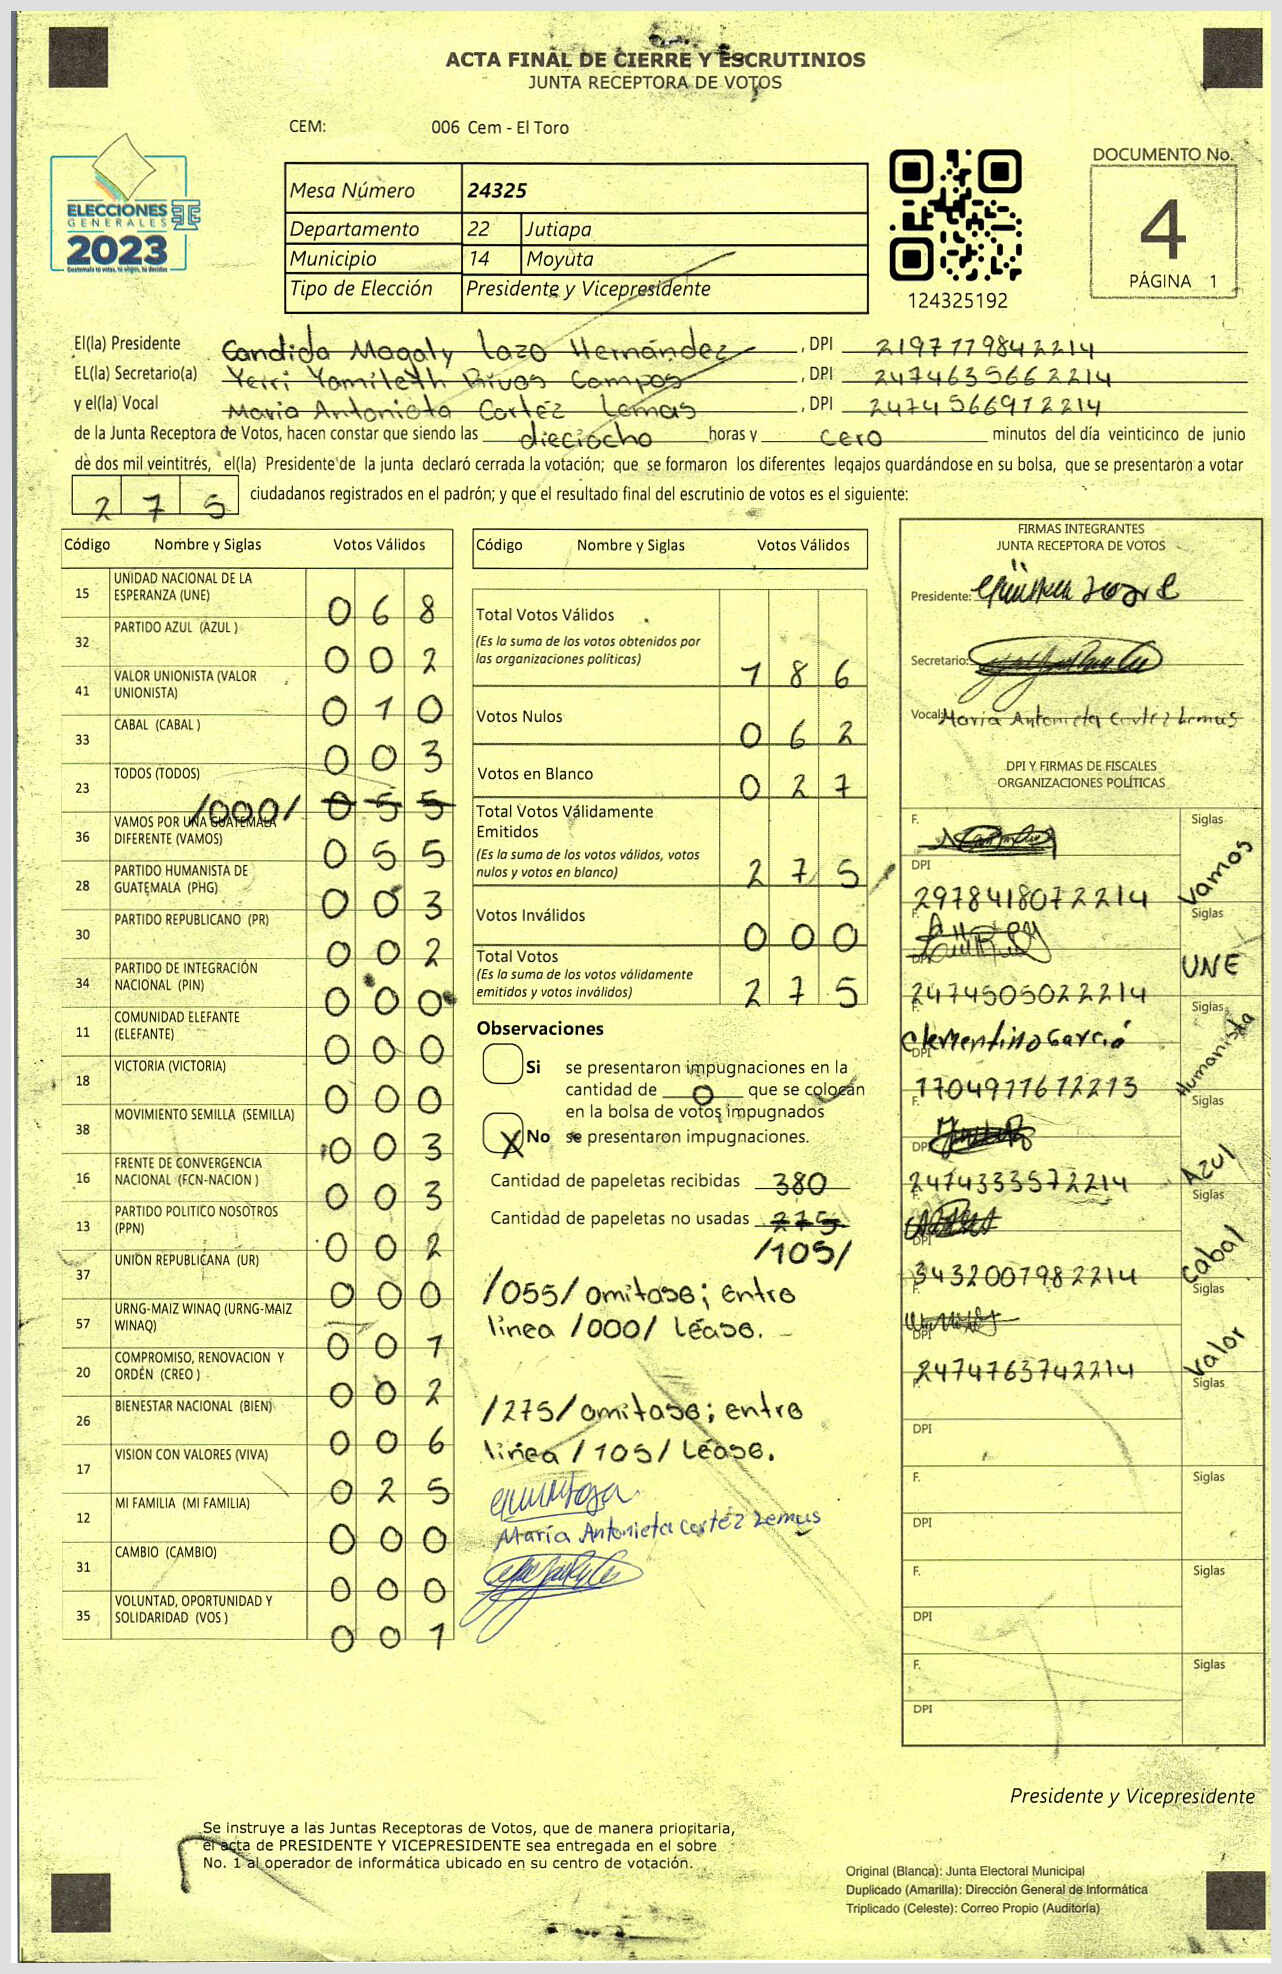 ACTA FINAL DE CIERRE Y ESCRUTINIOS
JUNTA RECEPTORA DE VOTOS
CEM: 006 Cem - El Toro
DOCUMENTO No.
4
PÁGINA 1
ELECCIONES
GENERALES
2023
Mesa Número 24325
Departamento 22 Jutiapa
Municipio 14 Moyuta
Tipo de Elección Presidente y Vicepresidente
124325192
El(la) Presidente Candida Magaly Lazo Hernández, DPI 2197779842214
EL(la) Secretario(a) Yerri Yamileth Rivas Campos, DPI 2474635662214
y el(la) Vocal Maria Antonieta Cortéz Lemas, DPI 2474566912214
de la Junta Receptora de Votos, hacen constar que siendo las dieciocho horas y cero minutos del día veinticinco de junio
de dos mil veintitrés, el(la) Presidente de la junta declaró cerrada la votación; que se formaron los diferentes legajos guardándose en su bolsa, que se presentaron a votar
275 ciudadanos registrados en el padrón; y que el resultado final del escrutinio de votos es el siguiente:
Código Nombre y Siglas Votos Válidos
15 UNIDAD NACIONAL DE LA ESPERANZA (UNE) 068
32 PARTIDO AZUL (AZUL ) 002
41 VALOR UNIONISTA (VALOR UNIONISTA) 010
33 CABAL (CABAL ) 003
23 TODOS (TODOS) /000/ 055
36 VAMOS POR UNA GUATEMALA DIFERENTE (VAMOS) 055
28 PARTIDO HUMANISTA DE GUATEMALA (PHG) 003
30 PARTIDO REPUBLICANO (PR) 002
34 PARTIDO DE INTEGRACIÓN NACIONAL (PIN) 000
11 COMUNIDAD ELEFANTE (ELEFANTE) 000
18 VICTORIA (VICTORIA) 000
38 MOVIMIENTO SEMILLA (SEMILLA) 003
16 FRENTE DE CONVERGENCIA NACIONAL (FCN-NACION ) 003
13 PARTIDO POLITICO NOSOTROS (PPN) 002
37 UNION REPUBLICANA (UR) 000
57 URNG-MAIZ WINAQ (URNG-MAIZ WINAQ) 001
20 COMPROMISO, RENOVACION Y ORDEN (CREO ) 002
26 BIENESTAR NACIONAL (BIEN) 006
17 VISION CON VALORES (VIVA) 025
12 MI FAMILIA (MI FAMILIA) 000
31 CAMBIO (CAMBIO) 000
35 VOLUNTAD, OPORTUNIDAD Y SOLIDARIDAD (VOS ) 001
Código Nombre y Siglas Votos Válidos
Total Votos Válidos
(Es la suma de los votos obtenidos por
las organizaciones políticas) 186
Votos Nulos 062
Votos en Blanco 027
Total Votos Válidamente
Emitidos
(Es la suma de los votos válidos, votos
nulos y votos en blanco) 275
Votos Inválidos 000
Total Votos
(Es la suma de los votos válidamente
emitidos y votos inválidos) 275
Observaciones
Si se presentaron impugnaciones en la
cantidad de 0 que se colocan
en la bolsa de votos impugnados
X No se presentaron impugnaciones.
Cantidad de papeletas recibidas 380
Cantidad de papeletas no usadas 275
/105/
/055/ omitase; entre
linea /000/ Léase.
/275/ omitase; entre
linea /105/ Léase.
María Antonieta Cortéz Lemus
FIRMAS INTEGRANTES
JUNTA RECEPTORA DE VOTOS
Presidente:
Secretario:
Vocal: María Antonieta Cortéz Lemus
DPI Y FIRMAS DE FISCALES
ORGANIZACIONES POLÍTICAS
F. Siglas
DPI 2978418072214 Vamos
F. Siglas
DPI 2474505022214 UNE
F. Clementino Garcia Siglas
DPI 1704911672213 Humanista
F. Siglas
DPI 2474333572214 Azul
F. Siglas
DPI 3432007982214 Cabal
F. Siglas
DPI 2474763742214 Valor
F. Siglas
DPI
F. Siglas
DPI
F. Siglas
DPI
F. Siglas
DPI
Presidente y Vicepresidente
Se instruye a las Juntas Receptoras de Votos, que de manera prioritaria,
el acta de PRESIDENTE Y VICEPRESIDENTE sea entregada en el sobre
No. 1 al operador de informática ubicado en su centro de votación.
Original (Blanca): Junta Electoral Municipal
Duplicado (Amarilla): Dirección General de Informática
Triplicado (Celeste): Correo Propio (Auditoría)